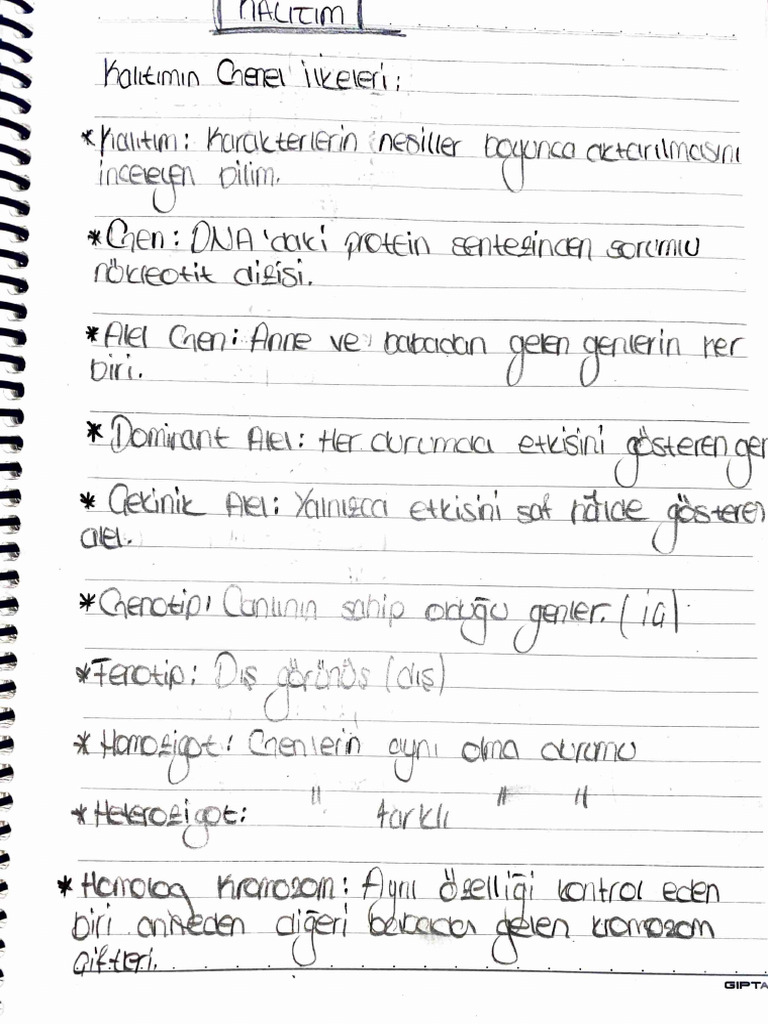 KALITIM
Kalıtımın Genel İlkeleri:
*Kalıtım: Karakterlerin nesiller boyunca aktarılmasını
inceleyen bilim.
*Gen: DNA'daki protein sentezinden sorumlu
nökleotit dizisi.
*Alel Gen: Anne ve babadan gelen genlerin her
biri.
*Dominant Alel: Her durumda etkisini gösteren gen
* Çekinik Alel: Yalnızca etkisini saf hâlde gösteren
alel.
*Genotip: Canlının sahip olduğu genler. (iç)
*Fenotip: Dış görünüş (dış)
* Homozigot: Genlerin aynı olma durumu
* Heterozigot: " farklı " "
* Homolog Kromozom: Aynı özelliği kontrol eden
biri anneden diğeri babadan gelen kromozom
çiftleri.
GIPTA